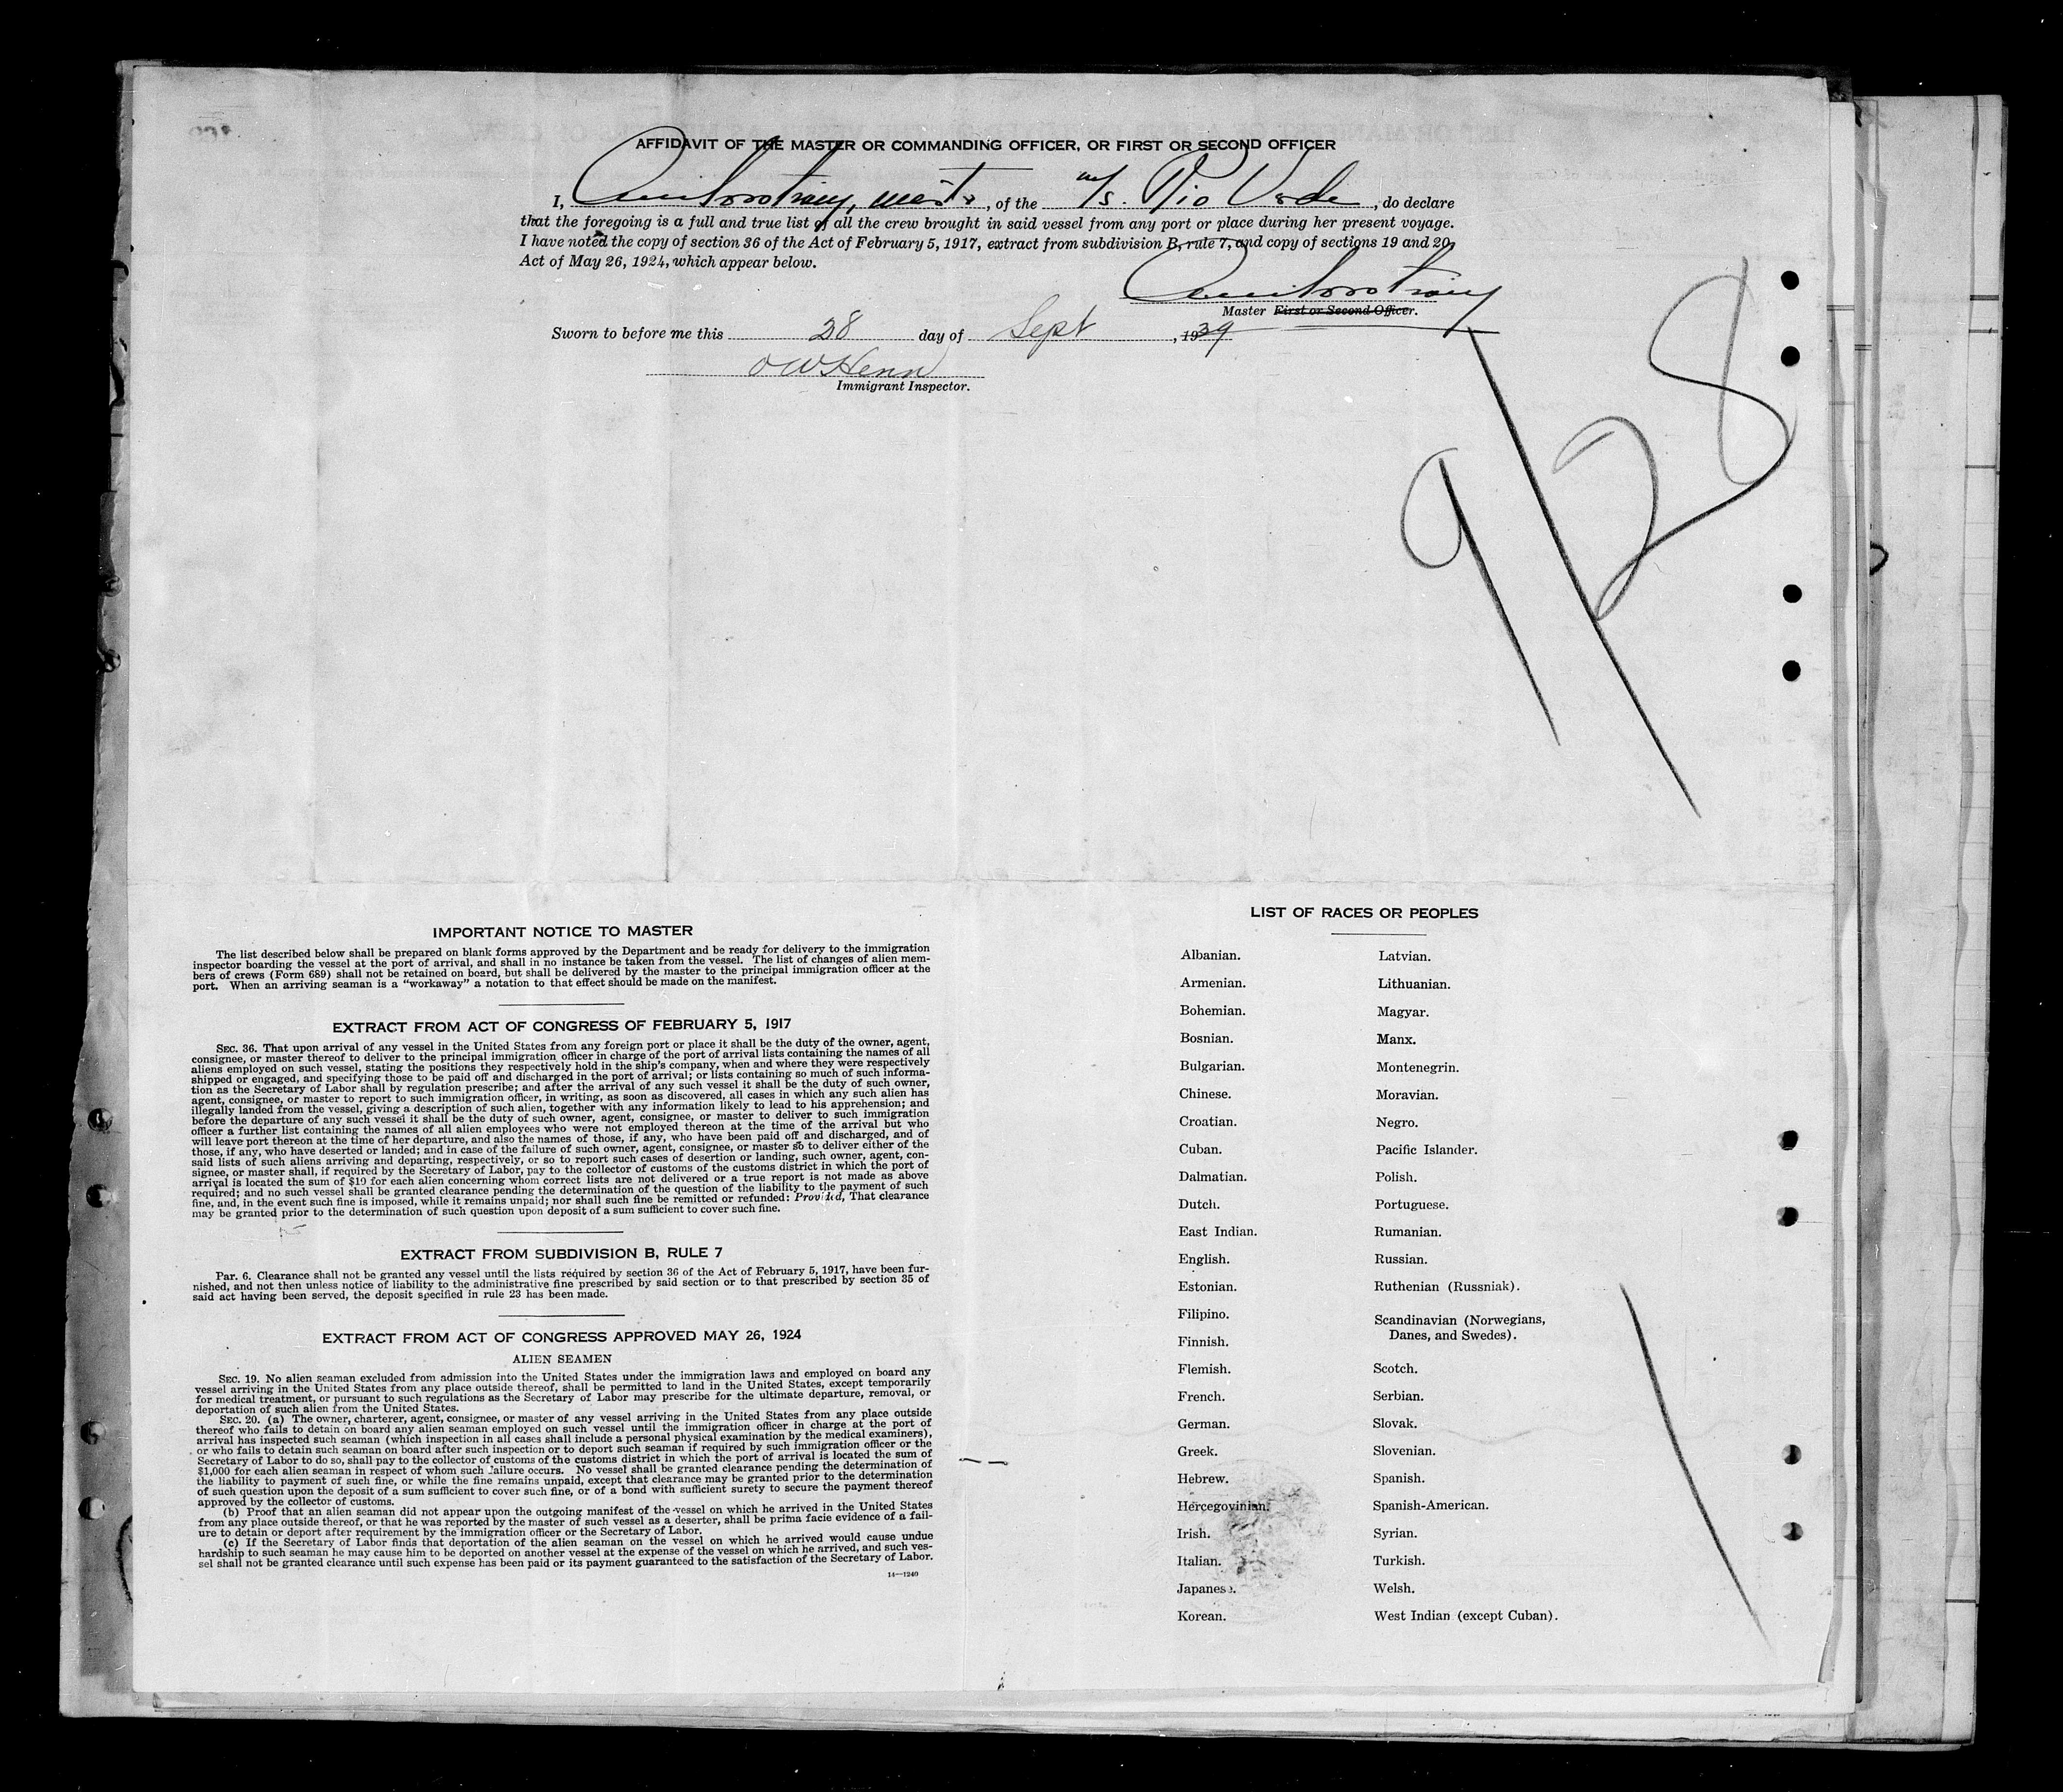 AFFIDAVIT OF THE MASTER OR COMMANDING OFFICER, OR FIRST OR SECOND OFFICER
I, , of the m/s. Rio Verde, do declare
that the foregoing is a full and true list of all the crew brought in said vessel from any port or place during her present voyage.
I have noted the copy of section 36 of the Act of February 5, 1917, extract from subdivision B, rule 7, and copy of sections 19 and 20,
Act of May 26, 1924, which appear below.
Master First or Second Officer.
Sworn to before me this 28 day of Sept, 1939
O W Henn
Immigrant Inspector.
9/28
IMPORTANT NOTICE TO MASTER
The list described below shall be prepared on blank forms approved by the Department and be ready for delivery to the immigration
inspector boarding the vessel at the port of arrival, and shall in no instance be taken from the vessel. The list of changes of alien mem-
bers of crews (Form 689) shall not be retained on board, but shall be delivered by the master to the principal immigration officer at the
port. When an arriving seaman is a "workaway" a notation to that effect should be made on the manifest.
EXTRACT FROM ACT OF CONGRESS OF FEBRUARY 5, 1917
SEC. 36. That upon arrival of any vessel in the United States from any foreign port or place it shall be the duty of the owner, agent,
consignee, or master thereof to deliver to the principal immigration officer in charge of the port of arrival lists containing the names of all
aliens employed on such vessel, stating the positions they respectively hold in the ship's company, when and where they were respectively
shipped or engaged, and specifying those to be paid off and discharged in the port of arrival; or lists containing so much of such informa-
tion as the Secretary of Labor shall by regulation prescribe; and after the arrival of any such vessel it shall be the duty of such owner,
agent, consignee, or master to report to such immigration officer, in writing, as soon as discovered, all cases in which any such alien has
illegally landed from the vessel, giving a description of such alien, together with any information likely to lead to his apprehension; and
before the departure of any such vessel it shall be the duty of such owner, agent, consignee, or master to deliver to such immigration
officer a further list containing the names of all alien employees who were not employed thereon at the time of the arrival but who
will leave port thereon at the time of her departure, and also the names of those, if any, who have been paid off and discharged, and of
those, if any, who have deserted or landed; and in case of the failure of such owner, agent, consignee, or master so to deliver either of the
said lists of such aliens arriving and departing, respectively, or so to report such cases of desertion or landing, such owner, agent, con-
signee, or master shall, if required by the Secretary of Labor, pay to the collector of customs of the customs district in which the port of
arrival is located the sum of $10 for each alien concerning whom correct lists are not delivered or a true report is not made as above
required; and no such vessel shall be granted clearance pending the determination of the question of the liability to the payment of such
fine, and, in the event such fine is imposed, while it remains unpaid; nor shall such fine be remitted or refunded: Provided, That clearance
may be granted prior to the determination of such question upon deposit of a sum sufficient to cover such fine.
EXTRACT FROM SUBDIVISION B, RULE 7
Par. 6. Clearance shall not be granted any vessel until the lists required by section 36 of the Act of February 5, 1917, have been fur-
nished, and not then unless notice of liability to the administrative fine prescribed by said section or to that prescribed by section 35 of
said act having been served, the deposit specified in rule 23 has been made.
EXTRACT FROM ACT OF CONGRESS APPROVED MAY 26, 1924
ALIEN SEAMEN
SEC. 19. No alien seaman excluded from admission into the United States under the immigration laws and employed on board any
vessel arriving in the United States from any place outside thereof, shall be permitted to land in the United States, except temporarily
for medical treatment, or pursuant to such regulations as the Secretary of Labor may prescribe for the ultimate departure, removal, or
deportation of such alien from the United States.
SEC. 20. (a) The owner, charterer, agent, consignee, or master of any vessel arriving in the United States from any place outside
thereof who fails to detain on board any alien seaman employed on such vessel until the immigration officer in charge at the port of
arrival has inspected such seaman (which inspection in all cases shall include a personal physical examination by the medical examiners),
or who fails to detain such seaman on board after such inspection or to deport such seaman if required by such immigration officer or the
Secretary of Labor to do so, shall pay to the collector of customs of the customs district in which the port of arrival is located the sum of
$1,000 for each alien seaman in respect of whom such failure occurs. No vessel shall be granted clearance pending the determination of
the liability to payment of such fine, or while the fine remains unpaid, except that clearance may be granted prior to the determination
of such question upon the deposit of a sum sufficient to cover such fine, or of a bond with sufficient surety to secure the payment thereof
approved by the collector of customs.
(b) Proof that an alien seaman did not appear upon the outgoing manifest of the vessel on which he arrived in the United States
from any place outside thereof, or that he was reported by the master of such vessel as a deserter, shall be prima facie evidence of a fail-
ure to detain or deport after requirement by the immigration officer or the Secretary of Labor.
(c) If the Secretary of Labor finds that deportation of the alien seaman on the vessel on which he arrived would cause undue
hardship to such seaman he may cause him to be deported on another vessel at the expense of the vessel on which he arrived, and such ves-
sel shall not be granted clearance until such expense has been paid or its payment guaranteed to the satisfaction of the Secretary of Labor.
14—1240
LIST OF RACES OR PEOPLES
Albanian.
Armenian.
Bohemian.
Bosnian.
Bulgarian.
Chinese.
Croatian.
Cuban.
Dalmatian.
Dutch.
East Indian.
English.
Estonian.
Filipino.
Finnish.
Flemish.
French.
German.
Greek.
Hebrew.
Hercegovinian.
Irish.
Italian.
Japanese.
Korean.
Latvian.
Lithuanian.
Magyar.
Manx.
Montenegrin.
Moravian.
Negro.
Pacific Islander.
Polish.
Portuguese.
Rumanian.
Russian.
Ruthenian (Russniak).
Scandinavian (Norwegians,
Danes, and Swedes).
Scotch.
Serbian.
Slovak.
Slovenian.
Spanish.
Spanish-American.
Syrian.
Turkish.
Welsh.
West Indian (except Cuban).